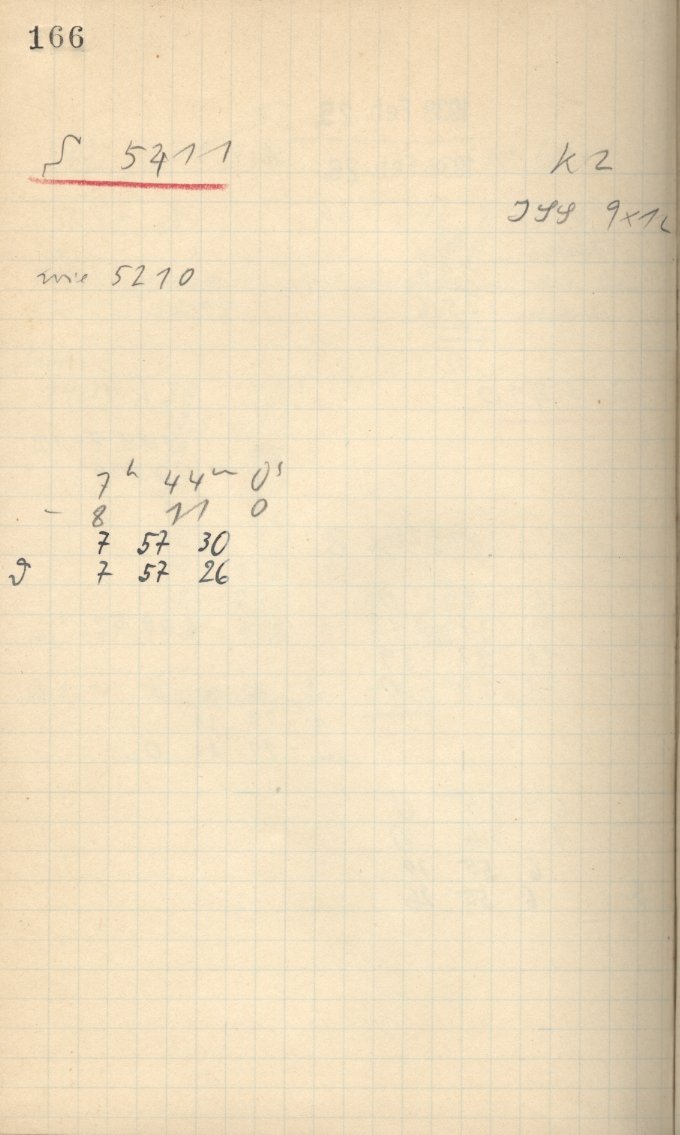 166
S 5411
K2
ISS 9x12
wie 5210
7h 44m 0s
- 8 11 0
7 57 30
ϑ 7 57 26